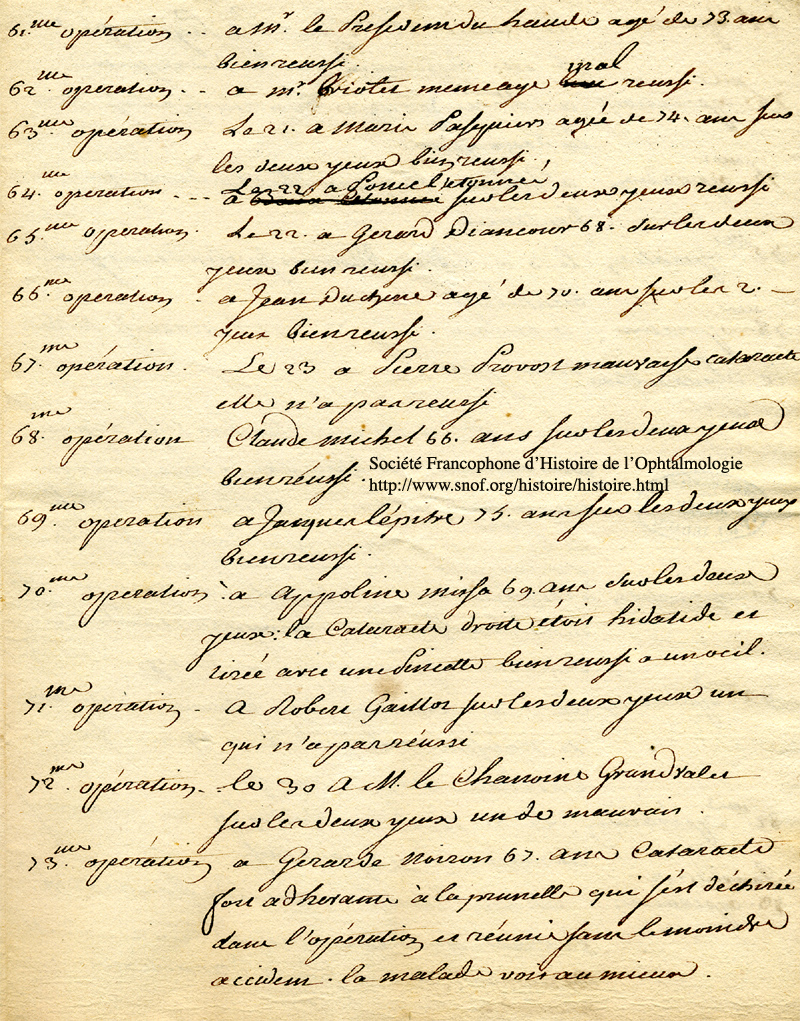 61.me opération .. a Mr. le President du haude agé de 73 ans
bien reussi.
62.me operation .. a mr. Violet meme age mal reussi.
63.me opération Le 21. a Marie Pasquiers agée de 74. ans sur
les deux yeux bien reussi.
Le 22 a
64.me operation --- a sur les deux yeux reussi
65.me operation. Le 22. a Gerard Diancour 68. sur les deux
yeux bien reussi.
66.me operation - a Jean Duchene agé de 70. ans sur les 2. —
yeux bien reussi.
67.me opération. Le 23 a Pierre Provost mauvaise cataracte
elle n'a pas reussi
68.me opération Claude michel 66. ans sur les deux yeux
bien réussi.
Société Francophone d'Histoire de l'Ophtalmologie
http://www.snof.org/histoire/histoire.html
69.me operation a Jacques lépitre 75. ans sur les deux yeux
bien reussi.
70.me opération à a Appoline missa 69 ans sur les deux
yeux : la Cataracte droite étoit hidatide et
tirée avec une Pincette bien reussi a un oeil.
71.me opération - A Robert Gaillot sur les deux yeux un
qui n'a pas réussi
72.me opération - le 30 A M. le Chanoine Grandvalet
sur les deux yeux un de mauvais.
73.me opération a Gerarde Noiron 67. ans Cataracte
fort adherante à la prunelle qui s'est déchirée
dans l'opération et réunie sans le moindre
accident. la malade voit au mieux.